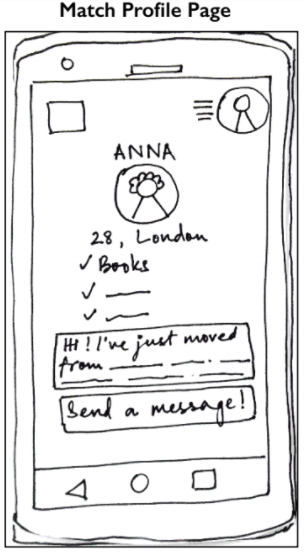 Match Profile Page
ANNA
28, London
✓ Books
✓
✓
Hi! I've just moved
from
Send a message!